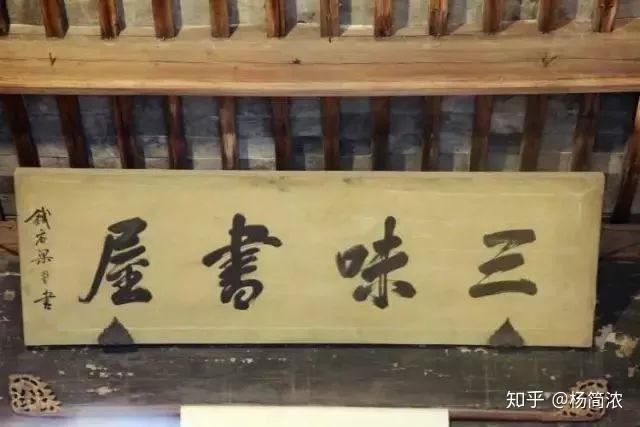 三味書屋
錢店梁同書
知乎 @杨简浓